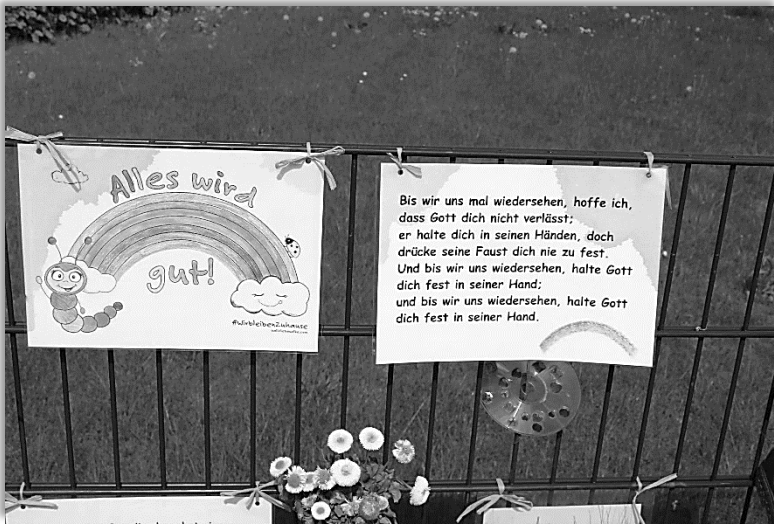 Alles wird
gut!
#WirbleibenZuhause
Bis wir uns mal wiedersehen, hoffe ich,
dass Gott dich nicht verlässt;
er halte dich in seinen Händen, doch
drücke seine Faust dich nie zu fest.
Und bis wir uns wiedersehen, halte Gott
dich fest in seiner Hand;
und bis wir uns wiedersehen, halte Gott
dich fest in seiner Hand.